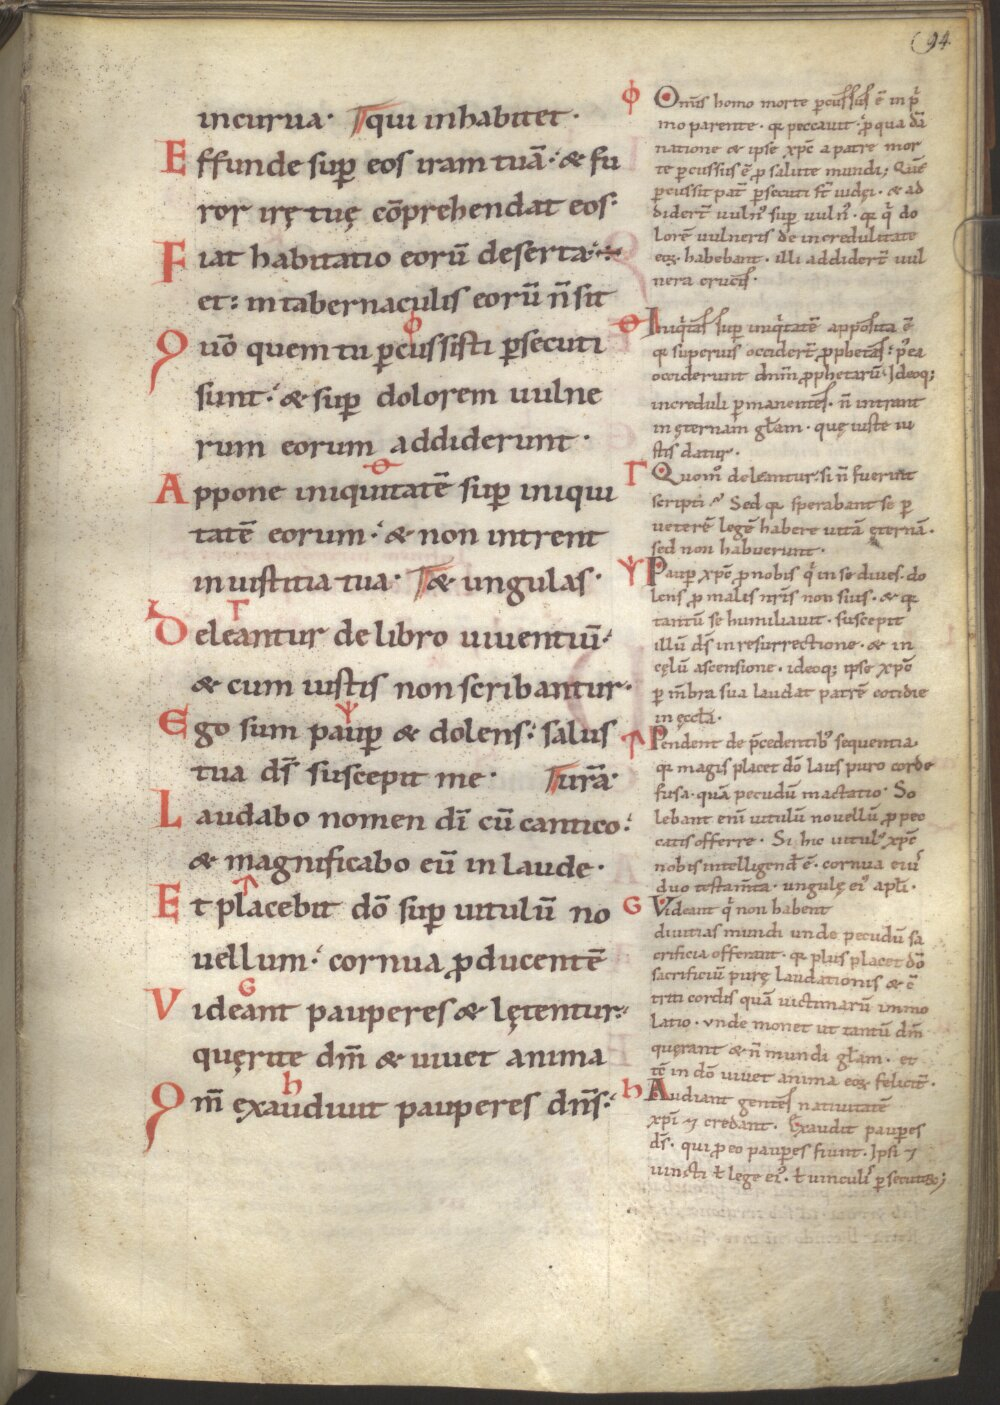 94
incurua· qui inhabitet·
Effunde suꝑ eos iram tuā· & fu
ror irę tuę cōprehendat eos·
Fiat habitatio eorū deserta·
et in tabernaculis eorū ñ sit
Qm̄o quem tu ꝑcussisti ꝑsecuti
sunt· & suꝑ dolorem uulne
rum eorum addiderunt·
Appone iniquitatē suꝑ iniqui
tatē eorum· & non intrent
in iustitia tua· & ungulas·
Deleantur de libro uiuentiū·
& cum iustis non scribantur·
Ego sum pauꝑ & dolens· salus
tua ds̄ suscepit me· turā·
Laudabo nomen dī cū cantico·
& magnificabo eū in laude·
Et placebit dō suꝑ uitulū no
uellum· cornua ꝓducentē
Videant pauperes & lętentur·
quęrite dm̄ & uiuet anima
Qm̄ exaudiuit pauperes dn̄s·
Φ Omīs homo morte ꝑcussus ē in pͥ
mo parente· qꝛ peccauit· ꝓ qua dā
natione & ipse xp̄c a patre mor
te ꝑcussus ē ꝓ salute mundi; Quē
ꝑcussit pat̄ ꝑsecuti st̄ iudęi· & ad
didert̄ uulnꝰ suꝑ uulnꝰ· qꝛ qͥ do
lorē uulneris de incredulitate
eoꝝ habebant· illi addidert̄ uul
nera crucis·
Θ Iniqͥtas suꝑ iniqͥtatē apposita ē
qꝛ superius occidert̄ ꝓphetas· pꝰea
occiderunt dnm̄ ꝓphetarū· Ideoq;
increduli ꝑmanentes· ñ intrant
in ęternam gl̄am· quę iuste iu
stis datur·
Γ Quomͦ deleantur· si ñ fuerunt
scripti? Sed qꝛ sperabant se ꝑ
ueterē legē habere uitā ęternā·
sed non habuerunt·
Pauꝑ xp̄c ꝓ nobis qͥ in se diues· do
lens ꝓ malis nr̄is non suis· & qꝛ
tantū se humiliauit· suscepit
illū ds̄ in resurrectione· & in
cęlū ascensione· ideoq; ipse xp̄c
ꝑ m̄bra sua laudat patrē cotidie
in ęccl̄a·
Pendent de p̄cedentibꝰ sequentia·
qꝛ magis placet dō laus puro corde
fusa· quā pecudū mactatio· So
lebant enī uitulū nouellū ꝓ pec
catis offerre· Si hic uitulꝰ xp̄c
nobis intelligend̄ ē· cornua eiꝰ
duo testam̄ta· ungulę eiꝰ apl̄i·
G Videant qͥ non habent
diuitias mundi unde pecudū sa
crificia offerant· qꝛ plus placet dō
sacrificiū purę laudationis & cō
triti cordis quā uictimarū immo
latio· vnde monet ut tantū dm̄
quęrant & ñ mundi gl̄am· et
tē in dō uiuet anima eoꝝ felicit̄·
h Audiant gentes natiuitatē
xp̄i ⁊ credant· Exaudit pauꝑes
ds̄· qui ꝓ eo pauꝑes fiunt· Ipsi ⁊
uincti ł lege eiꝰ· ł uinculis ꝑsecutoꝝ;